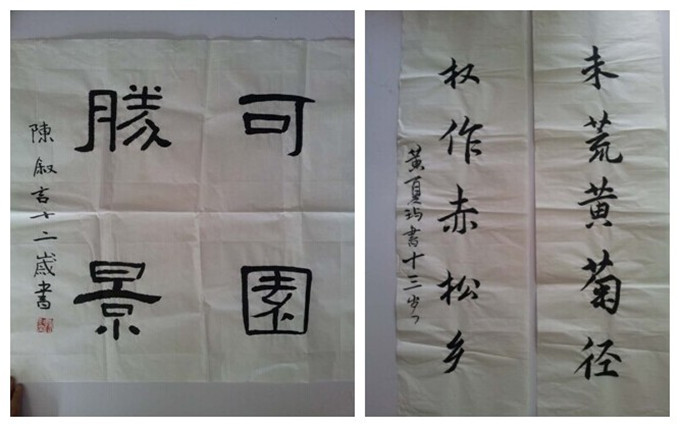 可園
勝景
陳叙吉十二歲書
未荒黄菊径
权作赤松乡
黄夏玙書十三岁